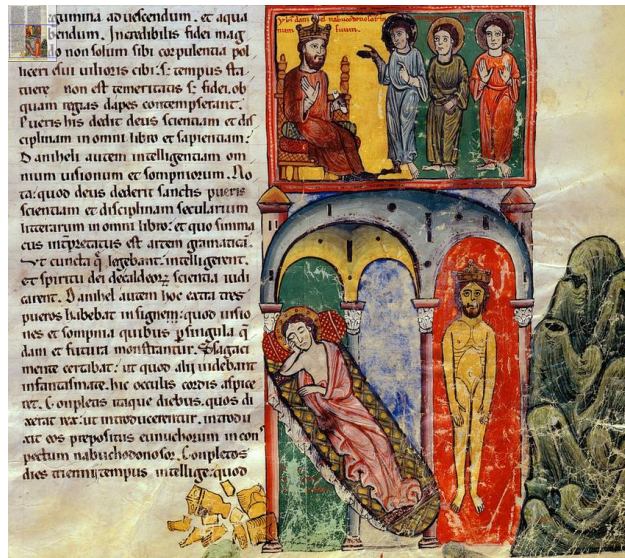 gumina ad uescendum. et aqua
bendum. Incredibilis fidei mag
non solum sibi corpulentia pol
liceri esui uilioris cibi: s; tempus sta
tuere non est temeritatis s; fidei. ob
quam regias dapes contempserant.
Pueris his dedit deus scientiam et dis
ciplinam in omni libro et sapientiam.
Daniheli autem intelligentiam om
nium uisionum et sompniorum. No
ta: quod deus dederit sanctis pueris
scientiam et disciplinam secularium
litterarum in omni libro: et quo simma
cus interpretatus est artem gramaticā.
Ut cuncta q̄ legebant. intelligerent.
et spiritu dei de caldeorꝝ scientia iudi
carent. Danihel autem hoc extra tres
pueros habebat insigne: quod uisio
nes et sompnia quibus ꝑ singula q̄
dam et futura monstrantur. Sagaci
mente certabat: ut quod alij uidebant
in fantasmate. hic occulis cordis aspice
ret. Conpletis itaque diebus. quos di
xerat rex: ut introducerentur. introdu
xit eos prepositus eunuchorum in con
spectum nabuchodonosor. Conpletos
dies triennij tempus intellige: quod